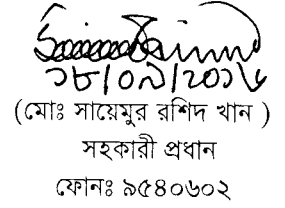 ১৮/০৯/২০১৬
(মোঃ সায়েমুর রশিদ খান )
সহকারী প্রধান
ফোনঃ ৯৫৪০৬০২